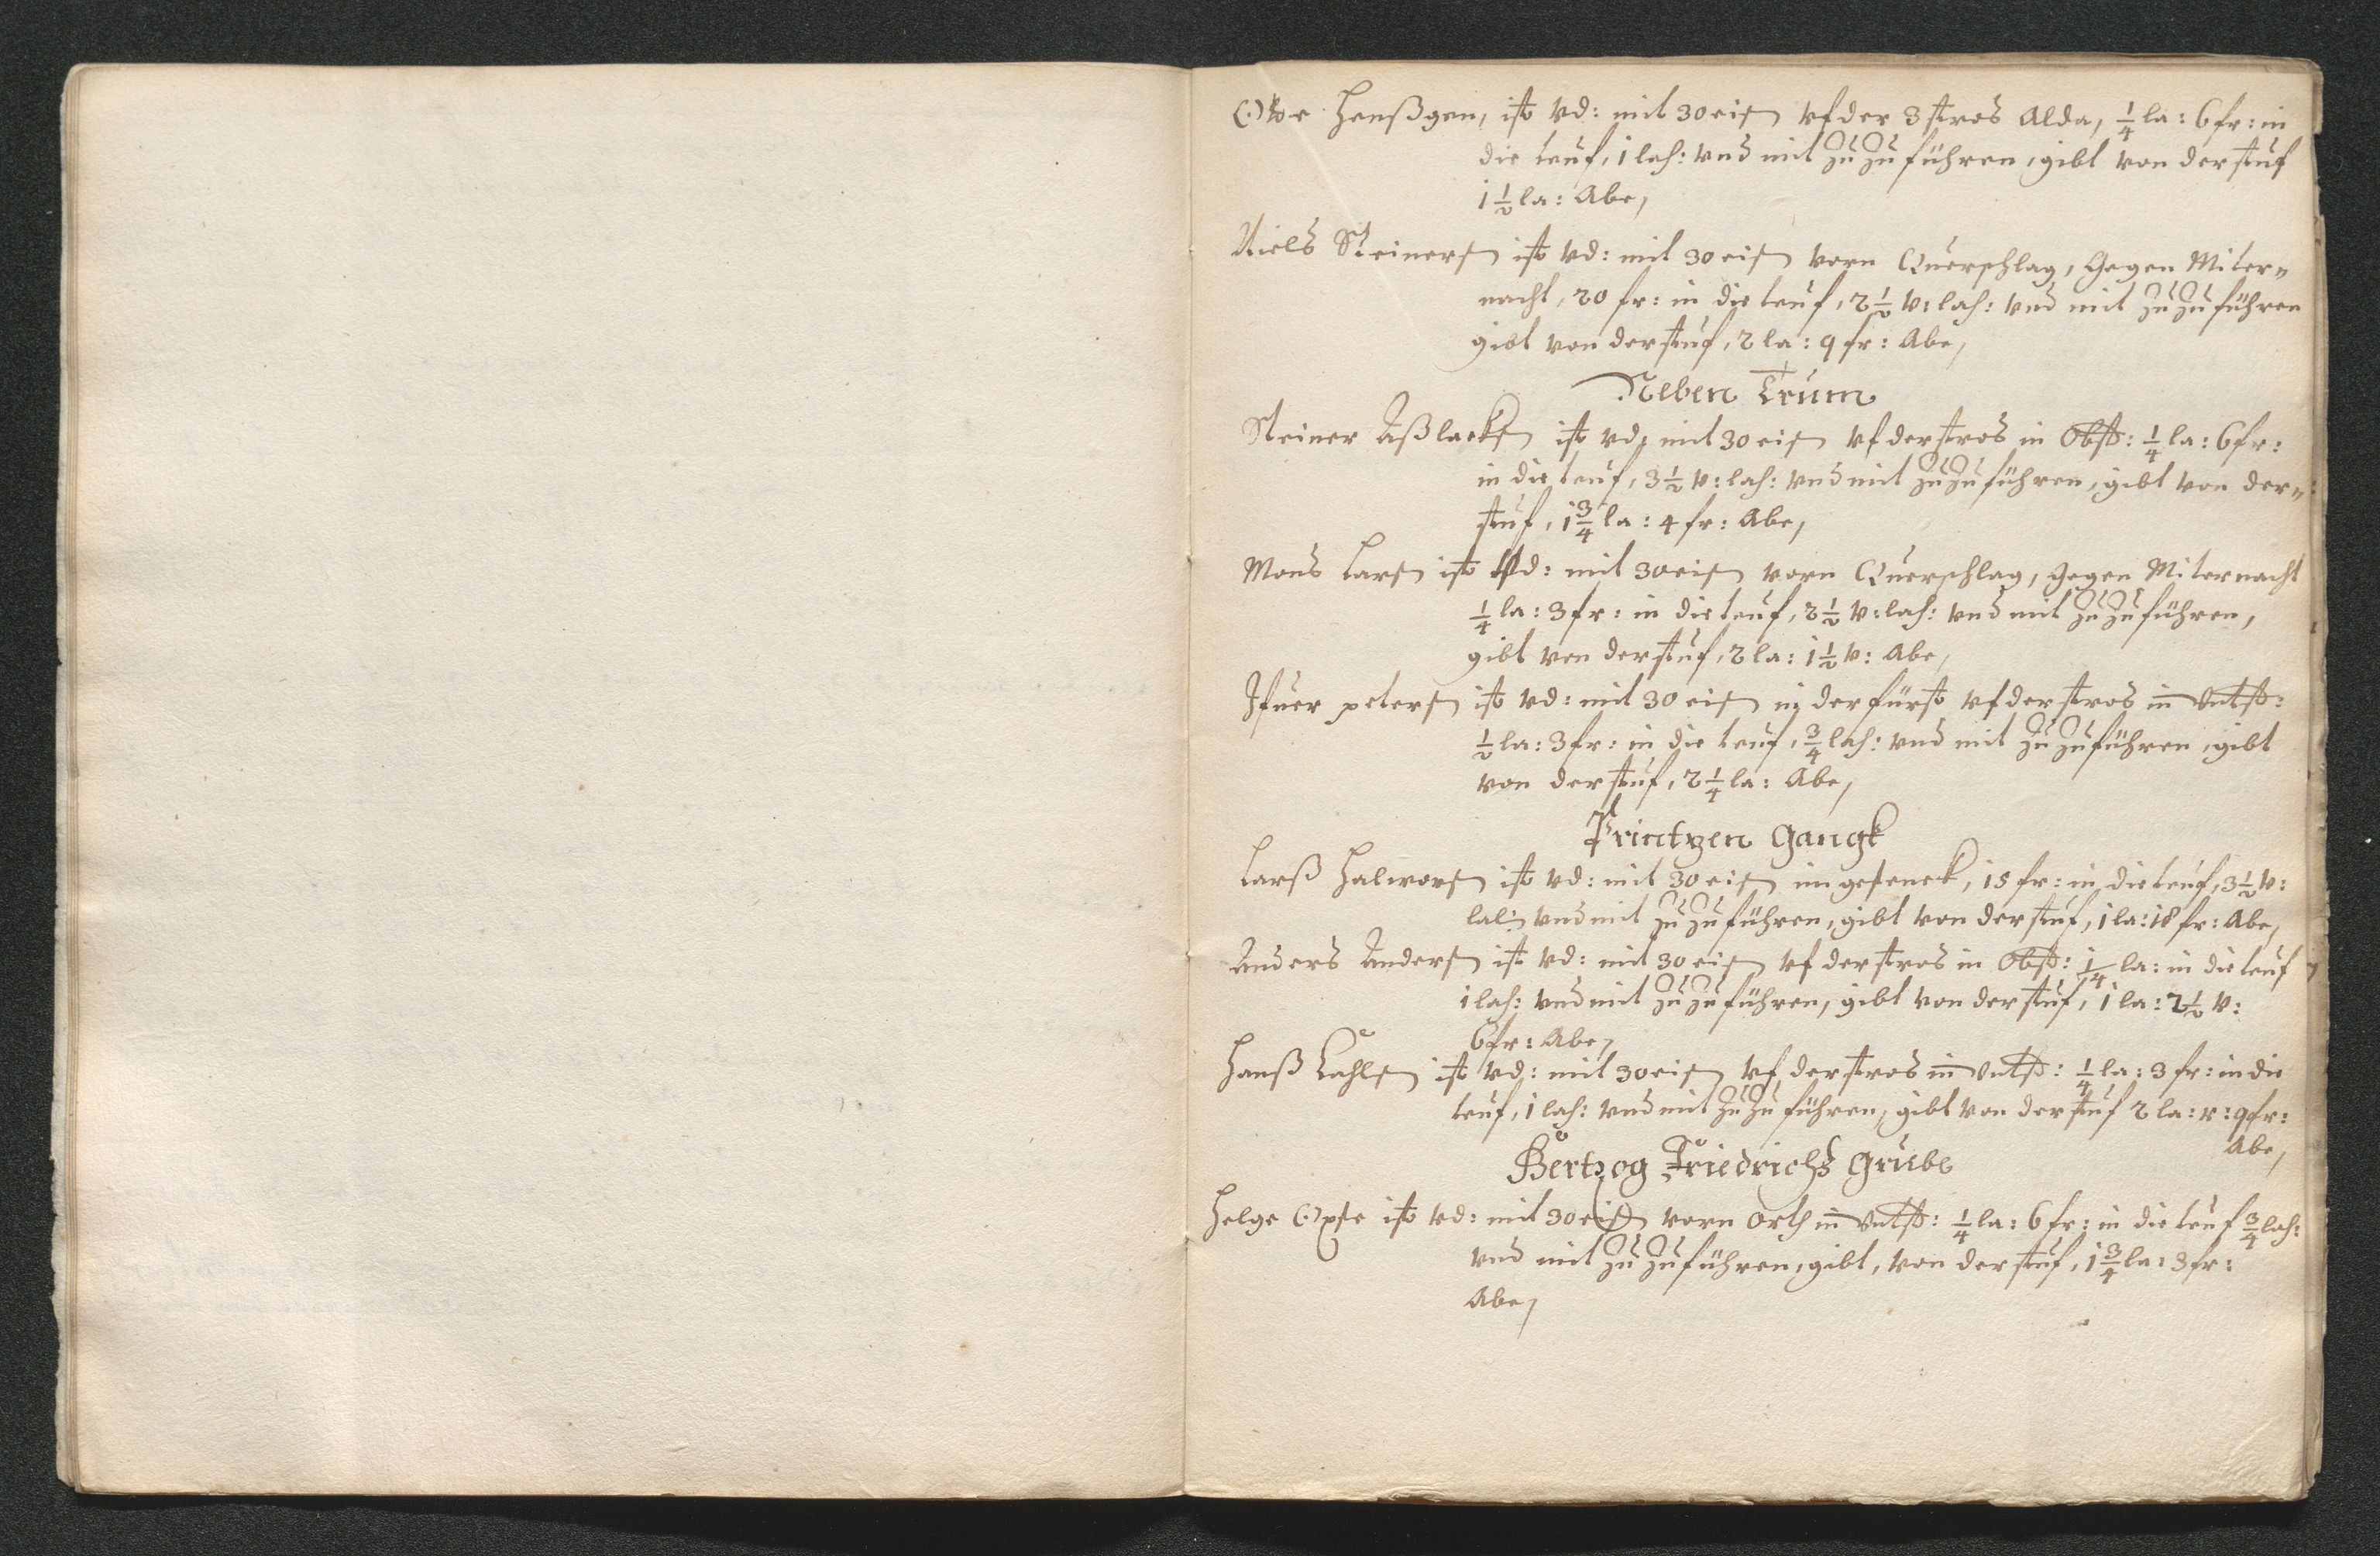 Henßgen, ist vd: mit 30 eisen vf der 3 stros Alda, 1/4 la: 6 fr: in
die teuf, 1 lach: vnd mit Zu Zu führen, gibt von der stuf
1 1/2 la: Abe,
Niels Steinersen ist vd: mit 30 eisen vorn Querschlag, Gegen Miter„
nacht, 20 fr: in die teuf, 2 1/2 v: lach: vnd mit Zu Zu führen
gibt von der stuf, 2 la: 9 fr: Abe,
Neben Trum
Steiner Aßlacksen ist vd: mit 30 eisen vf der stros in Obst: 1/4 la: 6 fr:
in die teuf, 3 1/2 v: lach: vnd mit Zu Zu führen, gibt von der„
stuf, 1 3/4 la: 4 fr: Abe,
Mons Larsen ist vd: mit 30 eisen vorn Querschlag, Gegen Miternacht
1/4 la: 3 fr: in die teuf, 2 1/2 v: lach: vnd mit Zu Zu führen,
gibt von der stuf, 2 la: 1 1/2 v: Abe,
Ifuer petersen ist vd: mit 30 eisen in der fürst vf der stros in Vntst:
1/2 la: 3 fr: in die teuf, 3/4 lach: vnd mit Zu Zu führen, gibt
von der stuf, 2 1/4 la: Abe,
Printzen Gangk
Larß Halworsen ist vd: mit 30 eisen im gesenck, 15 fr: in die teuf, 3 1/2 v:
lach: vnd mit Zu Zu führen, gibt von der stuf, 1 la: 18 fr: Abe,
Anders Andersen ist vd: mit 30 eisen vf der stros in Obst: 1/4 la: in die teuf
1 lach: vnd mit Zu Zu führen, gibt von der stuf, 1 la: 2 1/2 v:
6 fr: Abe,
Hanß Kahlsen ist vd: mit 30 eisen vf der stros in Vntst: 1/4 la: 3 fr: in die
teuf, 1 lach: vnd mit Zu Zu führen, gibt von der stuf 2 la: v: 9 fr:
Abe,
Hertzog Friedrichs Grube
Helge ist vd: mit 30 eisen vorn Orth in Vntst: 1/4 la: 6 fr: in die teuf 3/4 lach:
vnd mit Zu Zu führen, gibt, von der stuf, 1 3/4 la: 3 fr:
Abe,